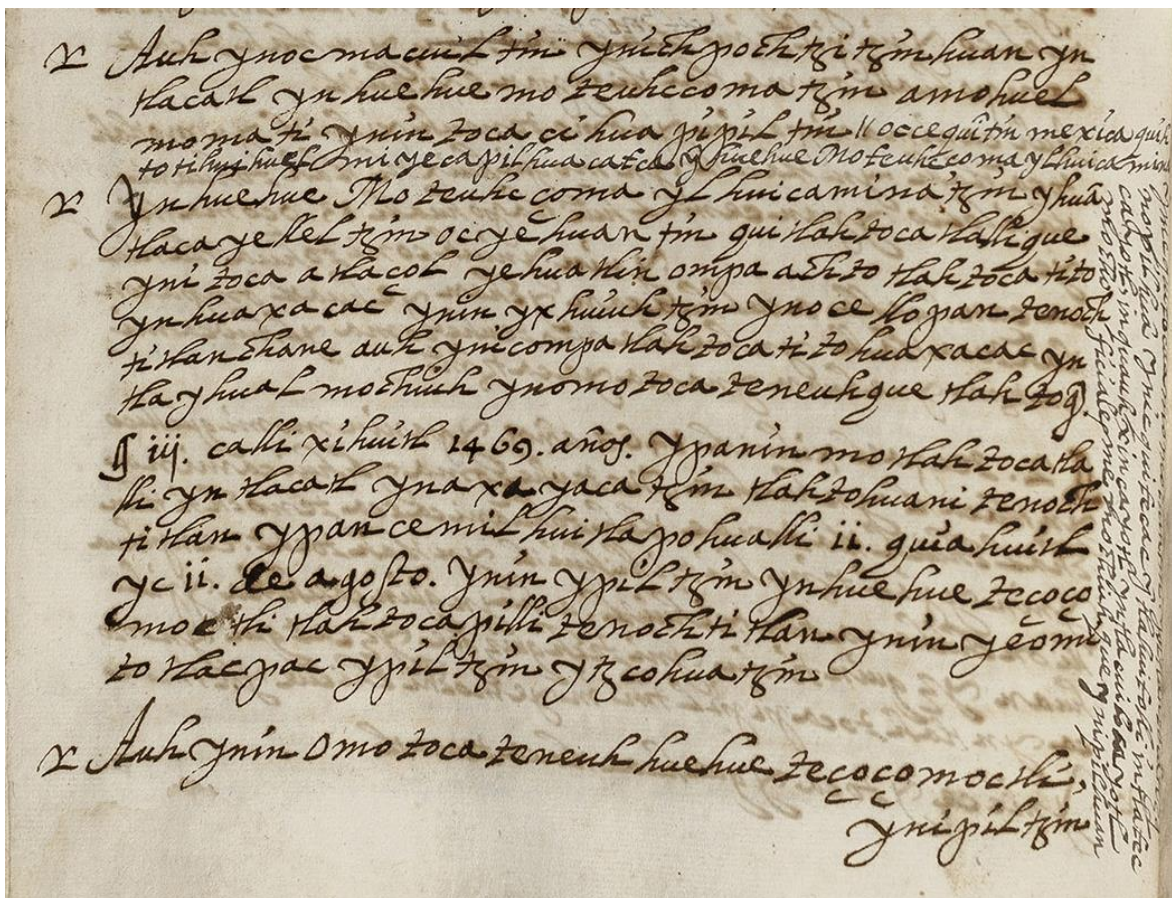 Auh ynoc macuiltin ynichpochtzitzinhuan yn
tlacatl ynhuehue moteuhcçomatzin amohuel
momati ynin toca cihuapipiltin // occequîtin mexica quih
totihui huel miyeca pilhua catca ỹ huehue Moteuhcçoma ylhuicamina
Yn huehue Moteuhcçoma ylhuicaminatzin yhuã
tlacayelleltzin ocyehuantin quitlahtocatlallique
yni toca atlaçol yehuatlin ompa achto tlahtocatito
ynhuaxacac ynin yxhuiuhtzin ynocellopan tenoch
titlan chane auh ynicompa tlahtocatito huaxacac yn
tlayhual mochiuh ynomotocateneuhque tlahtoq̃.
¶ iij. calli xihuitl 1469. años. ypanin motlahtocatla
lli yn tlacatl ynaxayacatzin tlahtohuani tenoch
titlan ypan cemilhuitlapohualli ii. quiahuitl
yc ii. de agosto. ynin ypiltzin ynhuehue teçoço
moctli tlahtocapilli tenochtitlan ynin yeomi
totlacpac ypiltzin ytzcohuatzin
Auh ynin omotocateneuh huehue teçoçomoctli,
ynipiltzin